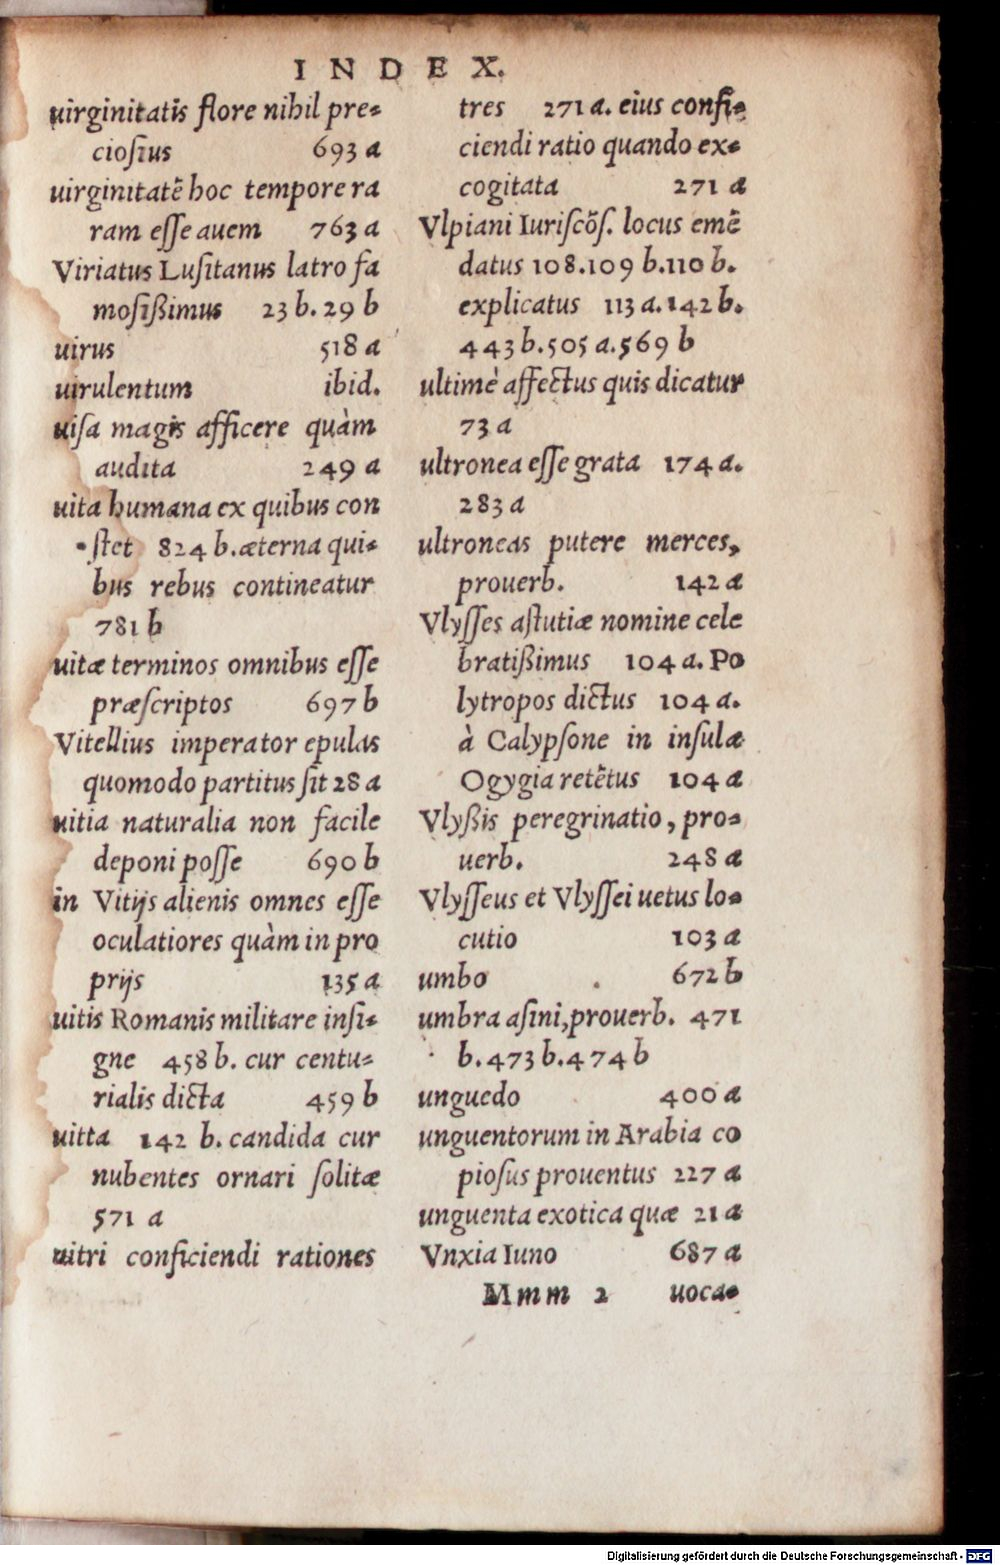 INDEX.
uirginitatis flore nihil pre-
ciosius 693 a
uirginitatē hoc tempore ra
ram esse auem 763 a
Viriatus Lusitanus latro fa
mosißimus 23 b. 29 b
uirus 518 a
uirulentum ibid.
uisa magis afficere quàm
audita 249 a
uita humana ex quibus con
stet 824 b. æterna qui-
bus rebus contineatur
781 b
uitæ terminos omnibus esse
præscriptos 697 b
Vitellius imperator epulas
quomodo partitus sit 28 a
uitia naturalia non facile
deponi posse 690 b
in Vitijs alienis omnes esse
oculatiores quàm in pro
prijs 135 a
uitis Romanis militare insi-
gne 458 b. cur centu-
rialis dicta 459 b
uitta 142 b. candida cur
nubentes ornari solitæ
571 a
uitri conficiendi rationes
tres 271 a. eius confi-
ciendi ratio quando ex-
cogitata 271 a
Vlpiani Iuriscōs. locus emē
datus 108. 109 b. 110 b.
explicatus 113 a. 142 b.
443 b. 505 a. 569 b
ultimè affectus quis dicatur
73 a
ultronea esse grata 174 a.
283 a
ultroneas putere merces,
prouerb. 142 a
Vlysses astutiæ nomine cele
bratißimus 104 a. Po
lytropos dictus 104 a.
à Calypsone in insula
Ogygia retētus 104 a
Vlyßis peregrinatio, pro-
uerb. 248 a
Vlysseus et Vlyssei uetus lo-
cutio 103 a
umbo 672 b
umbra asini, prouerb. 471
b. 473 b. 474 b
unguedo 400 a
unguentorum in Arabia co
piosus prouentus 227 a
unguenta exotica quæ 21 a
Vnxia Iuno 687 a
Mmm 2 uoca-
Digitalisierung gefördert durch die Deutsche Forschungsgemeinschaft - DFG